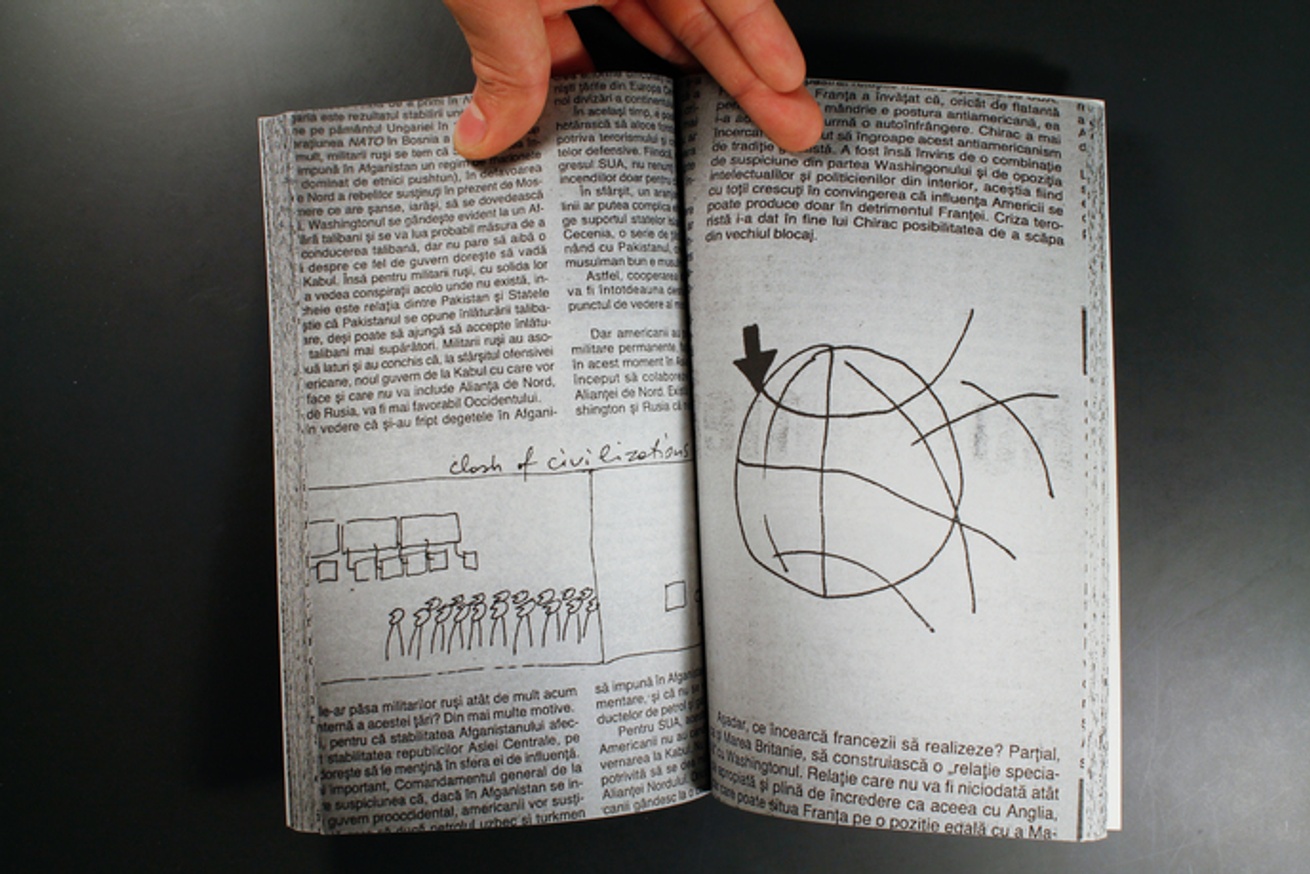 garia este rezultatul stabilirii
ne pe pământul Ungariei în
raţiunea NATO în Bosnia a
mult, militarii ruşi se tem că
impună în Afganistan un regim de marionete
dominat de etnici pushtun), în defavoarea
e Nord a rebelilor susţinuţi în prezent de Mos-
mere ce are şanse, iarăşi, să se dovedească
Washingtonul se gândeşte evident la un Af-
fără talibani şi se va lua probabil măsura de a
conducerea talibană, dar nu pare să aibă o
i despre ce fel de guvern doreşte să vadă
Kabul. Însă pentru militarii ruşi, cu solida lor
a vedea conspiraţii acolo unde nu există, in-
cheie este relaţia dintre Pakistan şi Statele
ştie că Pakistanul se opune înlăturării taliba-
are, deşi poate să ajungă să accepte înlătu-
talibani mai supărători. Militarii ruşi au aso-
uă laturi şi au conchis că, la sfârşitul ofensivei
ericane, noul guvern de la Kabul cu care vor
face şi care nu va include Alianţa de Nord,
de Rusia, va fi mai favorabil Occidentului.
în vedere că şi-au fript degetele în Afgani-
nişti ţările din Europa
noi divizări a continentului
În acelaşi timp, e
hotărască să aloce
potriva terorismului şi
telor defensive. Fiindcă
gresul SUA, nu
incendiilor doar pentru
În sfârşit, un
linii ar putea complica
ge suportul statelor
Cecenia, o serie de
nând cu Pakistanul,
musulman bun e
Astfel, cooperarea
va fi întotdeauna
punctul de vedere al
Dar americanii au
militare permanente,
în acest moment în
început să colaboreze
Alianţei de Nord.
shington şi Rusia că
clash of civilizations
le-ar păsa militarilor ruşi atât de mult acum
internă a acestei ţări? Din mai multe motive.
pentru că stabilitatea Afganistanului afec-
stabilitatea republicilor Asiei Centrale, pe
doreşte să le menţină în sfera ei de influenţă.
important, Comandamentul general de la
suspiciunea că, dacă în Afganistan se in-
guvern prooccidental, americanii vor susţi-
să ducă petrolul uzbec şi turkmen
să impună în
mentare, şi că nu
ductelor de petrol şi
Pentru SUA,
Americanii nu au
vernarea la Kabul.
potrivită să se
Alianţei Nordului.
canii gândesc la o
Franţa a învăţat că, oricât de flatantă
mândrie e postura antiamericană, ea
urmă o autoînfrângere. Chirac a mai
încercat să îngroape acest antiamericanism
de tradiţie A fost însă învins de o combinaţie
de suspiciune din partea Washingonului şi de opoziţia
intelectualilor şi politicienilor din interior, aceştia fiind
cu toţii crescuţi în convingerea că influenţa Americii se
poate produce doar în detrimentul Franţei. Criza tero-
ristă i-a dat în fine lui Chirac posibilitatea de a scăpa
din vechiul blocaj.
Aşadar, ce încearcă francezii să realizeze? Parţial,
şi Marea Britanie, să construiască o „relaţie specia-
cu Washingtonul. Relaţie care nu va fi niciodată atât
apropiată şi plină de încredere ca aceea cu Anglia,
care poate situa Franţa pe o poziţie egală cu a Ma-